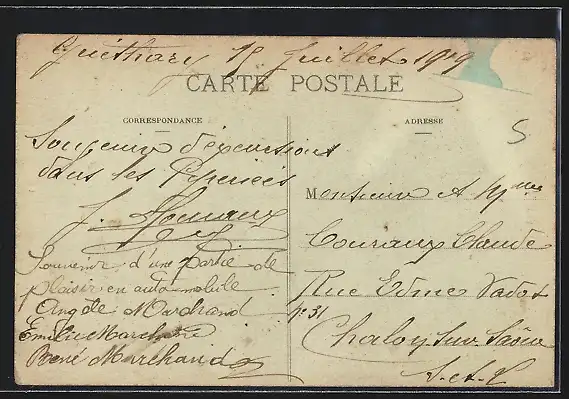 Guéthary 15 Juillet 1919
CARTE POSTALE
CORRESPONDANCE
ADRESSE
5
Souvenir d'excursions
dans les Pyrénées
J.
Souvenir d'une partie de
plaisir en automobile
Angèle Marchand
Emilie Marchand
René Marchand
Monsieur et Mme
Couraux Claude
Rue Edme Vadot
n° 31
Chalon sur Saône
S.-et-L